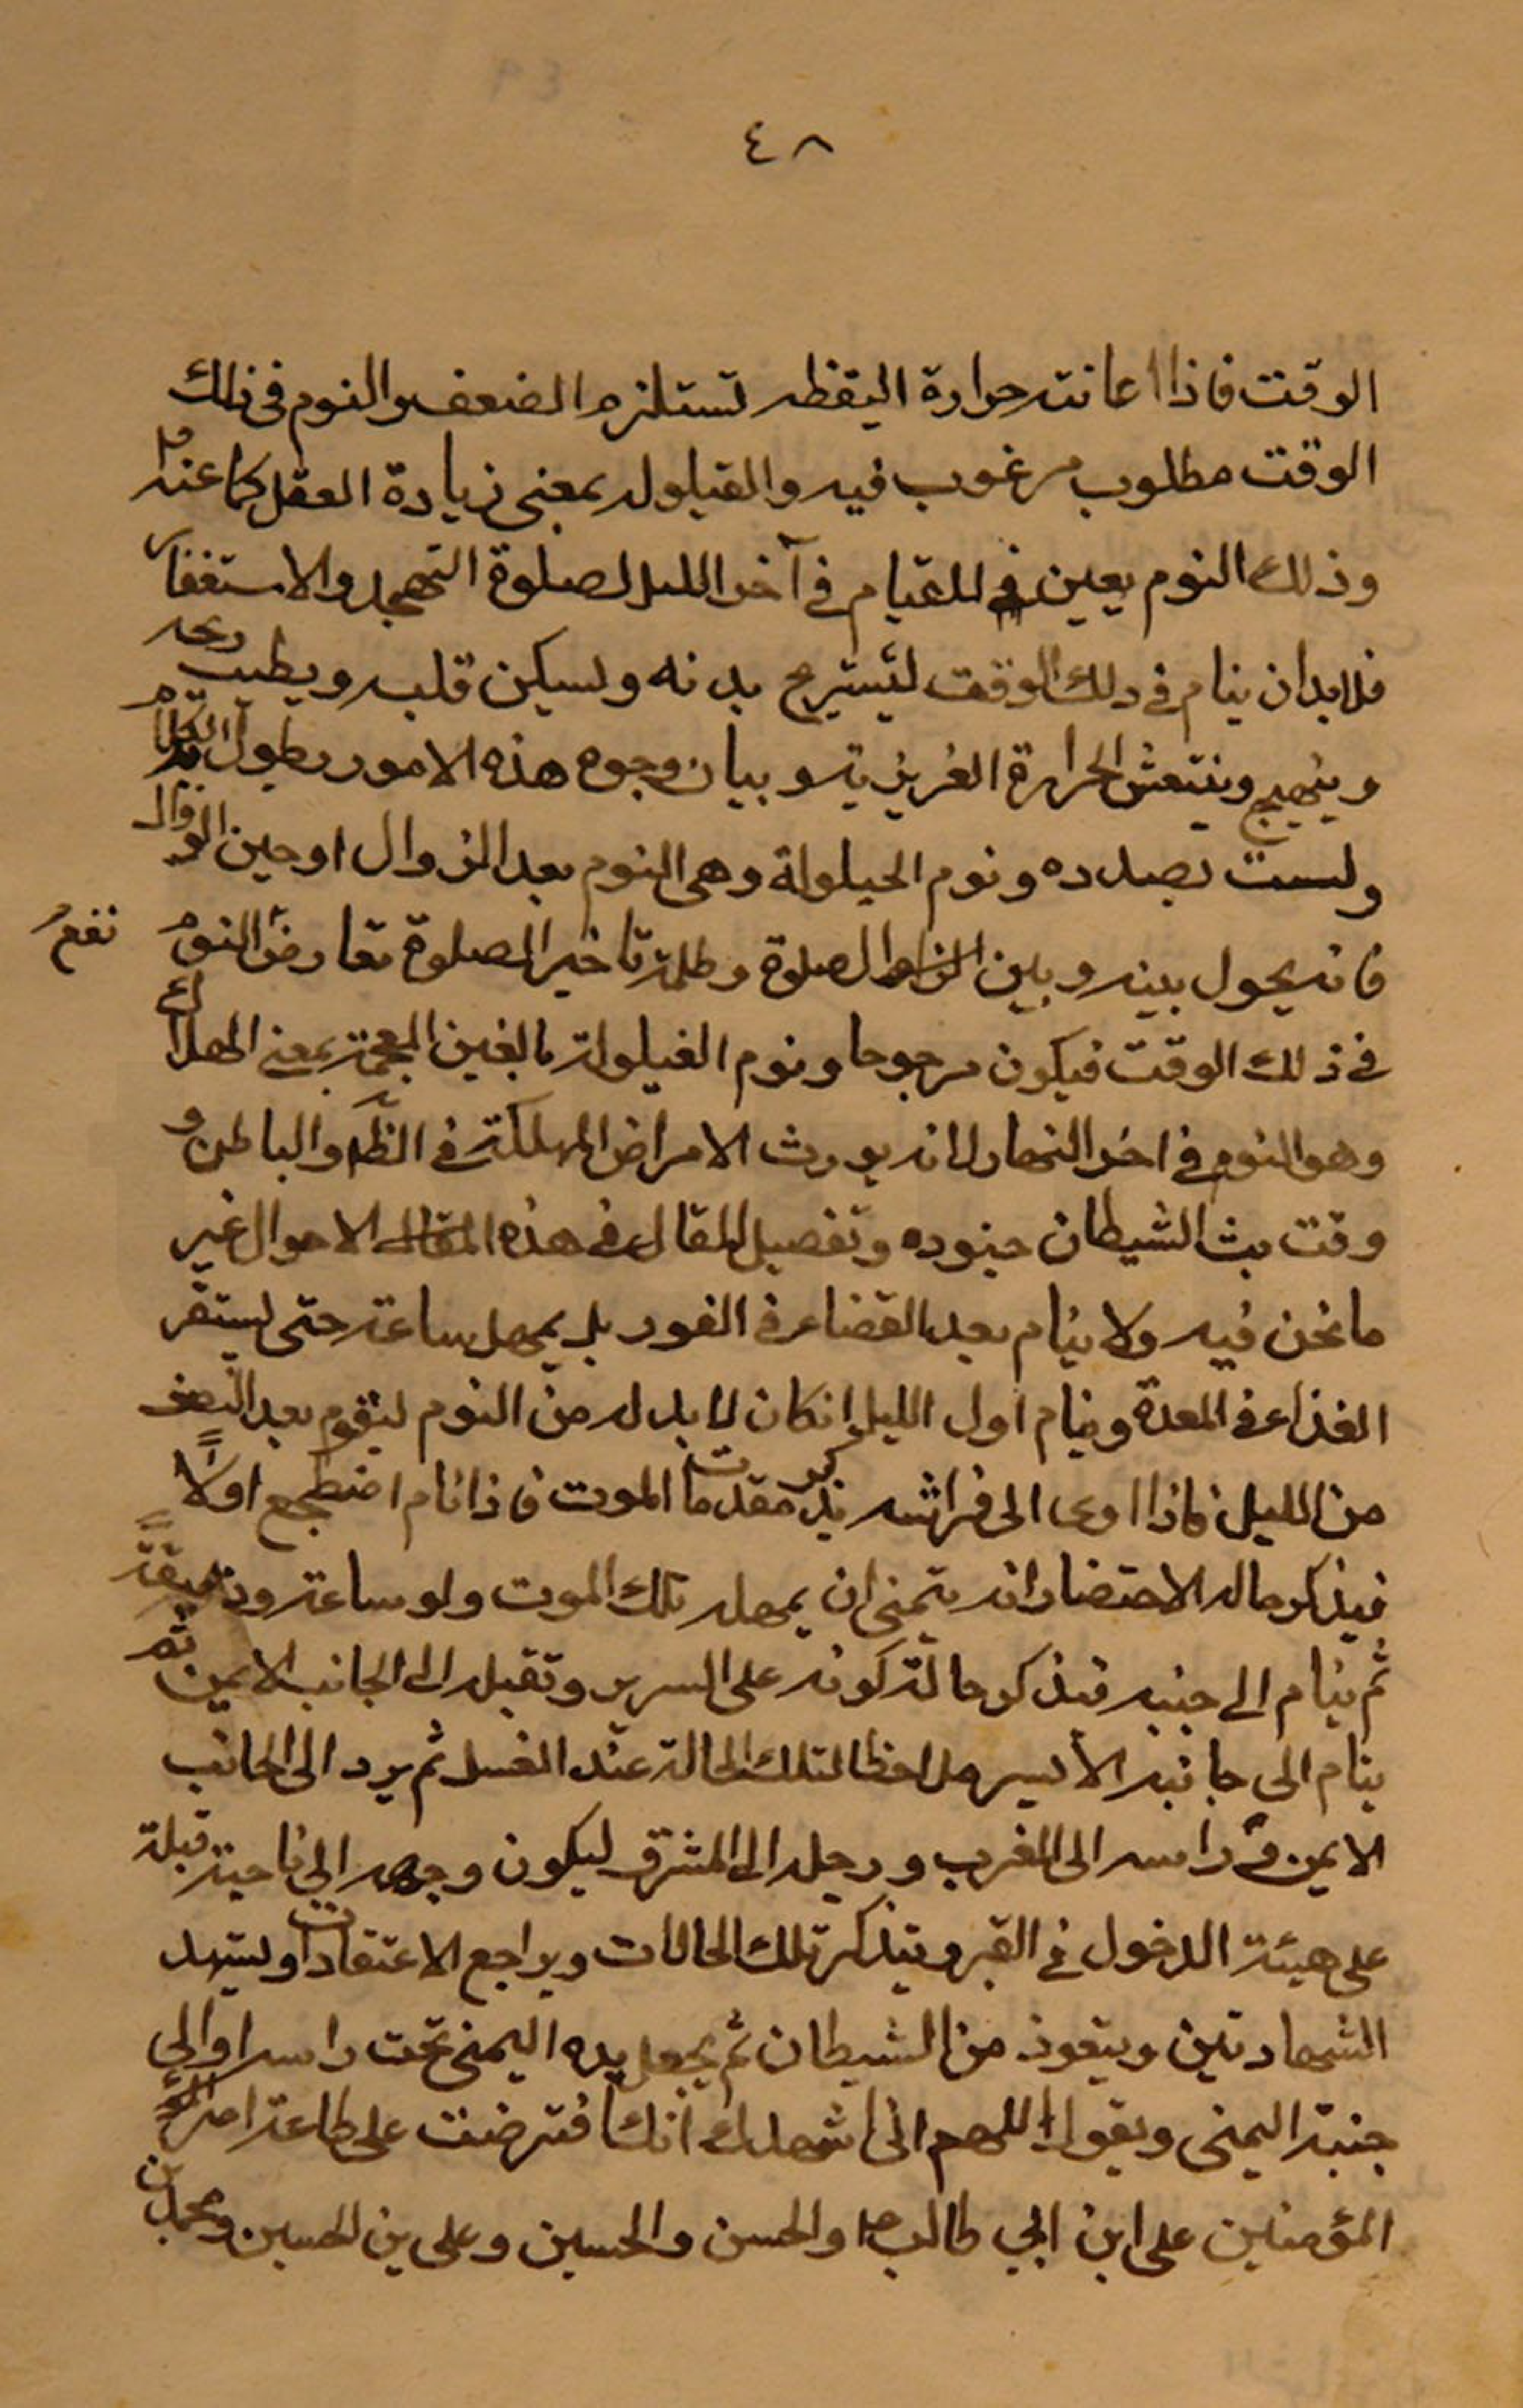 ٤٨
الوقت فاذا اعانته حرارة اليقظه تستلزم الضعف والنوم فى ذلك
الوقت مطلوب مرغوب فيه والقيلوله بمعنى زيادة العقل كما عنهم
وذلك النوم يعين للقيام في آخر الليل لصلوة التهجد والاستغفار
فلابد ان ينام في ذلك الوقت ليستريح بدنه ويسكن قلبه ويطيب ريحه
وينهيج وينتعش الحرارة الغريزية وبيان وجوه هذه الامور يطول الكلام
ولست بصدده ونوم الحيلولة وهى النوم بعد الزوال او حين الزوال
فانه يحول بينه وبين الصلوة وظلمة تاخير الصلوة تعارض النوم نفع
في ذلك الوقت فيكون مرجوحا ونوم الغيلولة بالغين المعجمة بمعنى الهلاك
وهو النوم في اخر النهار لانه يورث الامراض المهلكة في الظاهر والباطن و
وقت بث الشيطان جنوده وتفصيل المقال في هذه الاحوال غير
ما نحن فيه ولا ينام بعد الغذاء في الفور بل يمهل ساعة حتى يستقر
الغذاء في المعدة وينام اول الليل انكان لابد له من النوم ليقوم بعد النصف
من الليل فاذا اوى الى فراشه يذكر مقدمات الموت فاذا نام اضطجع اولاً
فيذكر حاله الاحتضار انه يتمنى ان يمهله ملك الموت ولو ساعة ودقيقة
ثم ينام الى جنبه فيذكر حالة كونه على السرير وتقبله الى الجانب الايمن ثم
ينام الى جانبه الأيسر ملاحظا لتلك الحالة عند الغسل ثم يرد الى الجانب
الايمن وراسه الى المغرب ورجله الى المشرق ليكون وجهه الى ناحية قبلة
على هيئة الدخول في القبر ويتذكر تلك الحالات ويراجع الاعتقادات ويشهد
الشهادتين ويتعوذ من الشيطان ثم يجعل يده اليمنى تحت راسه او الى
جنبه اليمنى ويقول اللهم انى اشهدك انك افترضت على طاعة امير
المؤمنين على ابن ابي طالب والحسن والحسين وعلى بن الحسين ومحمد بن